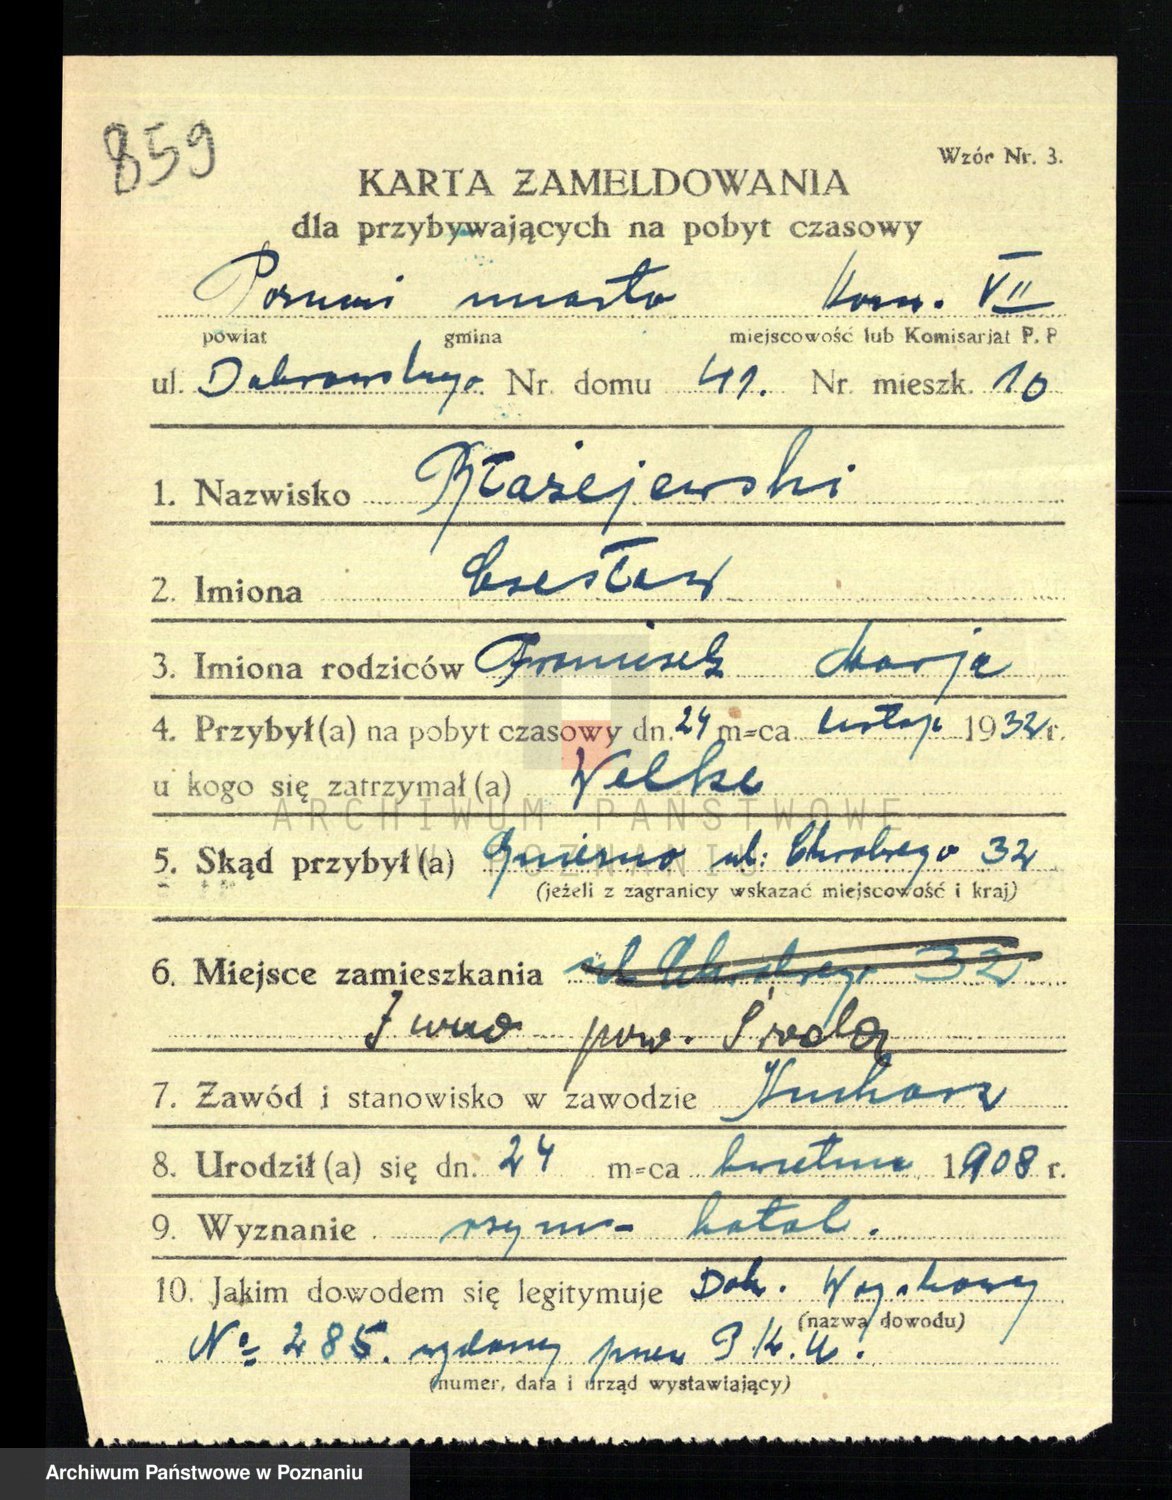 859
Wzór Nr. 3.
KARTA ZAMELDOWANIA
dla przybywających na pobyt czasowy
Poznań miasto Kom. VII
powiat gmina miejscowość lub Komisarjat P. P
ul. Dabrowskiego Nr. domu 41. Nr. mieszk. 10
1. Nazwisko Błażejewski
2. Imiona Czesław
3. Imiona rodziców Franciszek Marja
4. Przybył(a) na pobyt czasowy dn. 24 m=ca listop 1932 r.
u kogo się zatrzymał(a) Welke
ARCHIWUM PAŃSTWOWE
W POZNANIU
5. Skąd przybył(a) Gniezno ul: Chrobrego 32
(jeżeli z zagranicy wskazać miejscowość i kraj)
6. Miejsce zamieszkania ul Chrobrego 32
pow. Środa
7. Zawód i stanowisko w zawodzie Kucharz
8. Urodził(a) się dn. 24 m=ca kwietnia 1908 r.
9. Wyznanie rzym- katol.
10. Jakim dowodem się legitymuje Dok. Wojskowy
(nazwa dowodu)
No 285. wydany przez P.K.U.
(numer, data i urząd wystawiający)
Archiwum Państwowe w Poznaniu